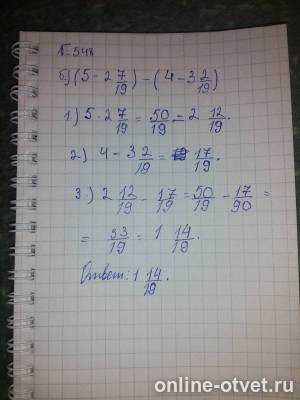 № 548
б) (5 - 2 7/19) - (4 - 3 2/19)
1.) 5 - 2 7/19 = 50/19 = 2 12/19.
2.) 4 - 3 2/19 = 17/19.
3.) 2 12/19 - 17/19 = 50/19 - 17/90 =
= 33/19 = 1 14/19.
Ответ: 1 14/19.
online-otvet.ru